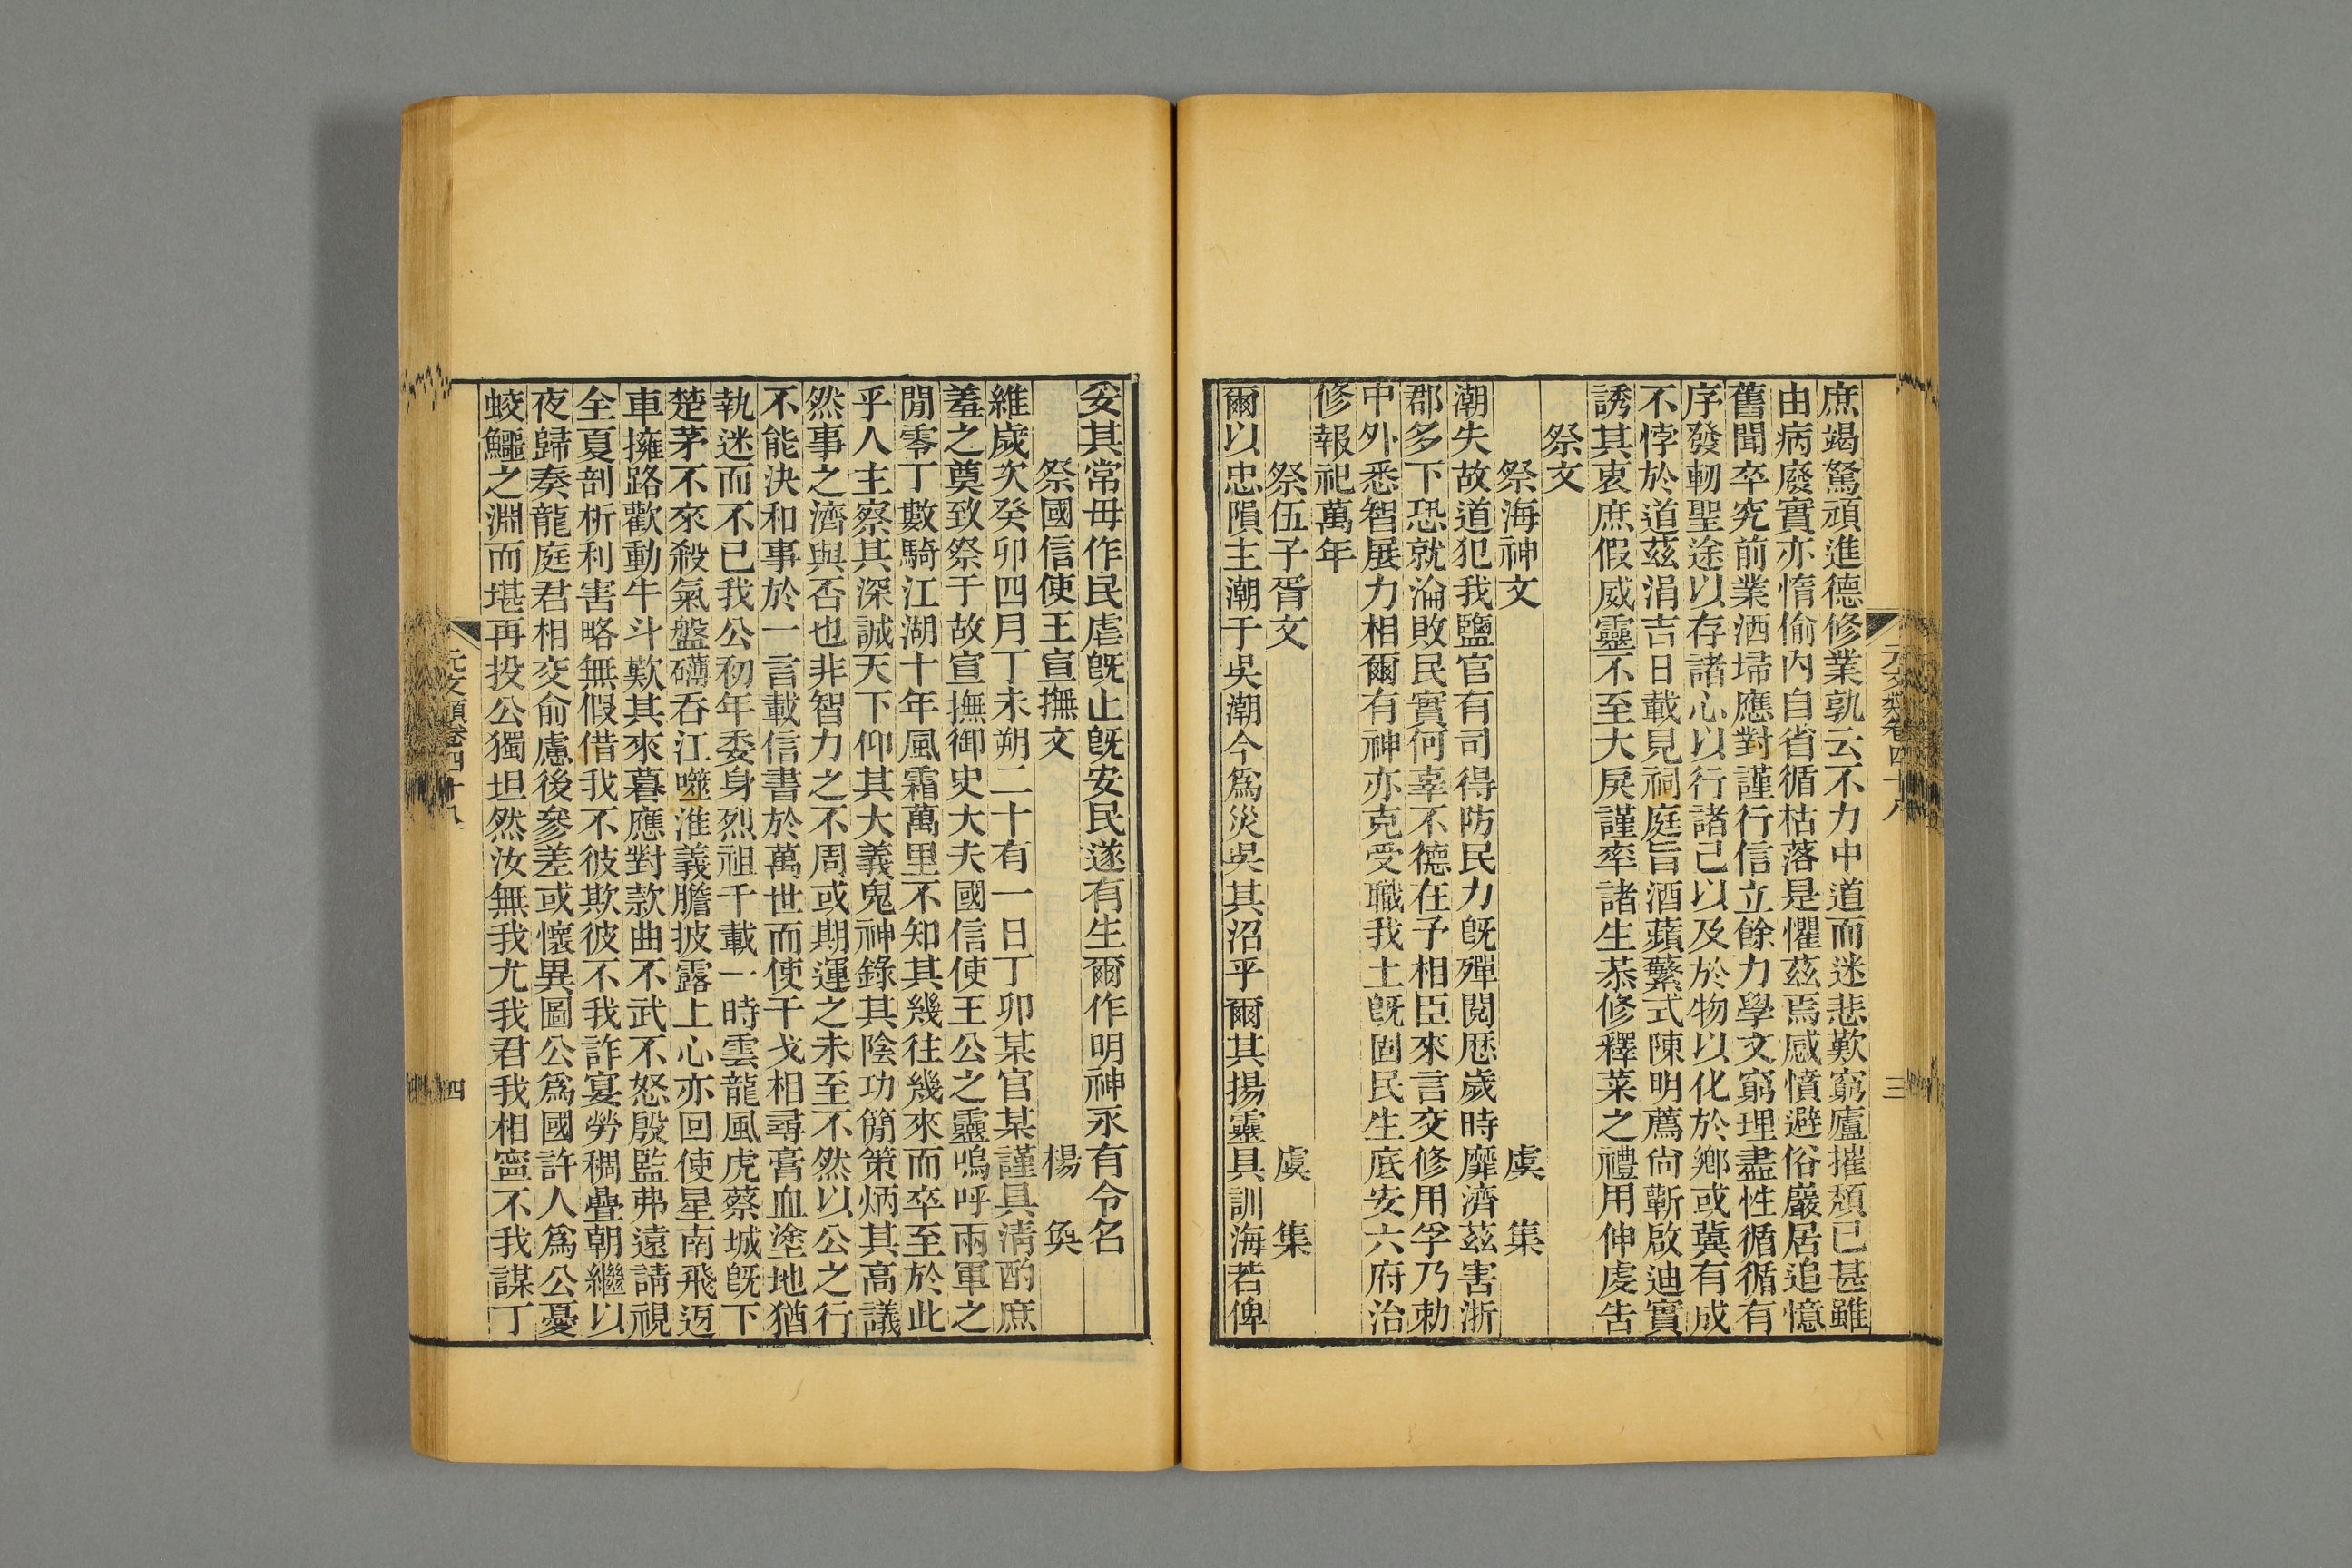 庶竭駑頑進德修業孰云不力中道而迷悲歎窮廬摧頹已甚雖
由病廢實亦惰偷內自省循枯落是懼茲焉感憤避俗嚴居追憶
舊聞卒究前業洒埽應對謹行信立餘力學文窮理盡性循循有
序發軔聖途以存諸心以行諸己以及於物以化於鄉或冀有成
不悖於道茲涓吉日載見祠庭旨酒蘋蘩式陳明薦尙蘄啟迪實
誘其衷庶假威靈不至大戾謹率諸生恭修釋菜之禮用伸虔告
祭文
祭海神文 虞 集
潮失故道犯我鹽官有司得防民力旣殫閱歷歲時靡濟茲害浙
郡多下恐就淪敗民實何辜不德在予相臣來言交修用孚乃勅
中外悉智展力相爾有神亦克受職我土旣固民生底安六府治
修報祀萬年
祭伍子胥文 虞 集
爾以忠隕主潮于吳潮今爲災吳其沼乎爾其揚靈具訓海若俾
元文類卷四十八 三
安其常毋作民虐旣止旣安民遂有生爾作明神永有令名
祭國信使王宣撫文 楊 奐
維歲次癸卯四月丁未朔二十有一日丁卯某官某謹具淸酌庶
羞之奠致祭于故宣撫御史大夫國信使王公之靈嗚呼兩軍之
閒零丁數騎江湖十年風霜萬里不知其幾往幾來而卒至於此
乎人主察其深誠天下仰其大義鬼神錄其陰功簡策炳其高議
然事之濟與否也非智力之不周或期運之未至不然以公之行
不能決和事於一言載信書於萬世而使干戈相尋膏血塗地猶
執迷而不已我公初年委身烈祖千載一時雲龍風虎蔡城旣下
楚茅不來殺氣盤礴吞江噬淮義膽披露上心亦回使星南飛迓
車擁路歡動牛斗歎其來暮應對款曲不武不怒殷監弗遠請視
全夏剖析利害略無假借我不彼欺彼不我詐宴勞稠疊朝繼以
夜歸奏龍庭君相交俞慮後參差或懷異圖公爲國許人爲公憂
蛟鱷之淵而堪再投公獨坦然汝無我尤我君我相寧不我謀丁
元文類卷四十八 四